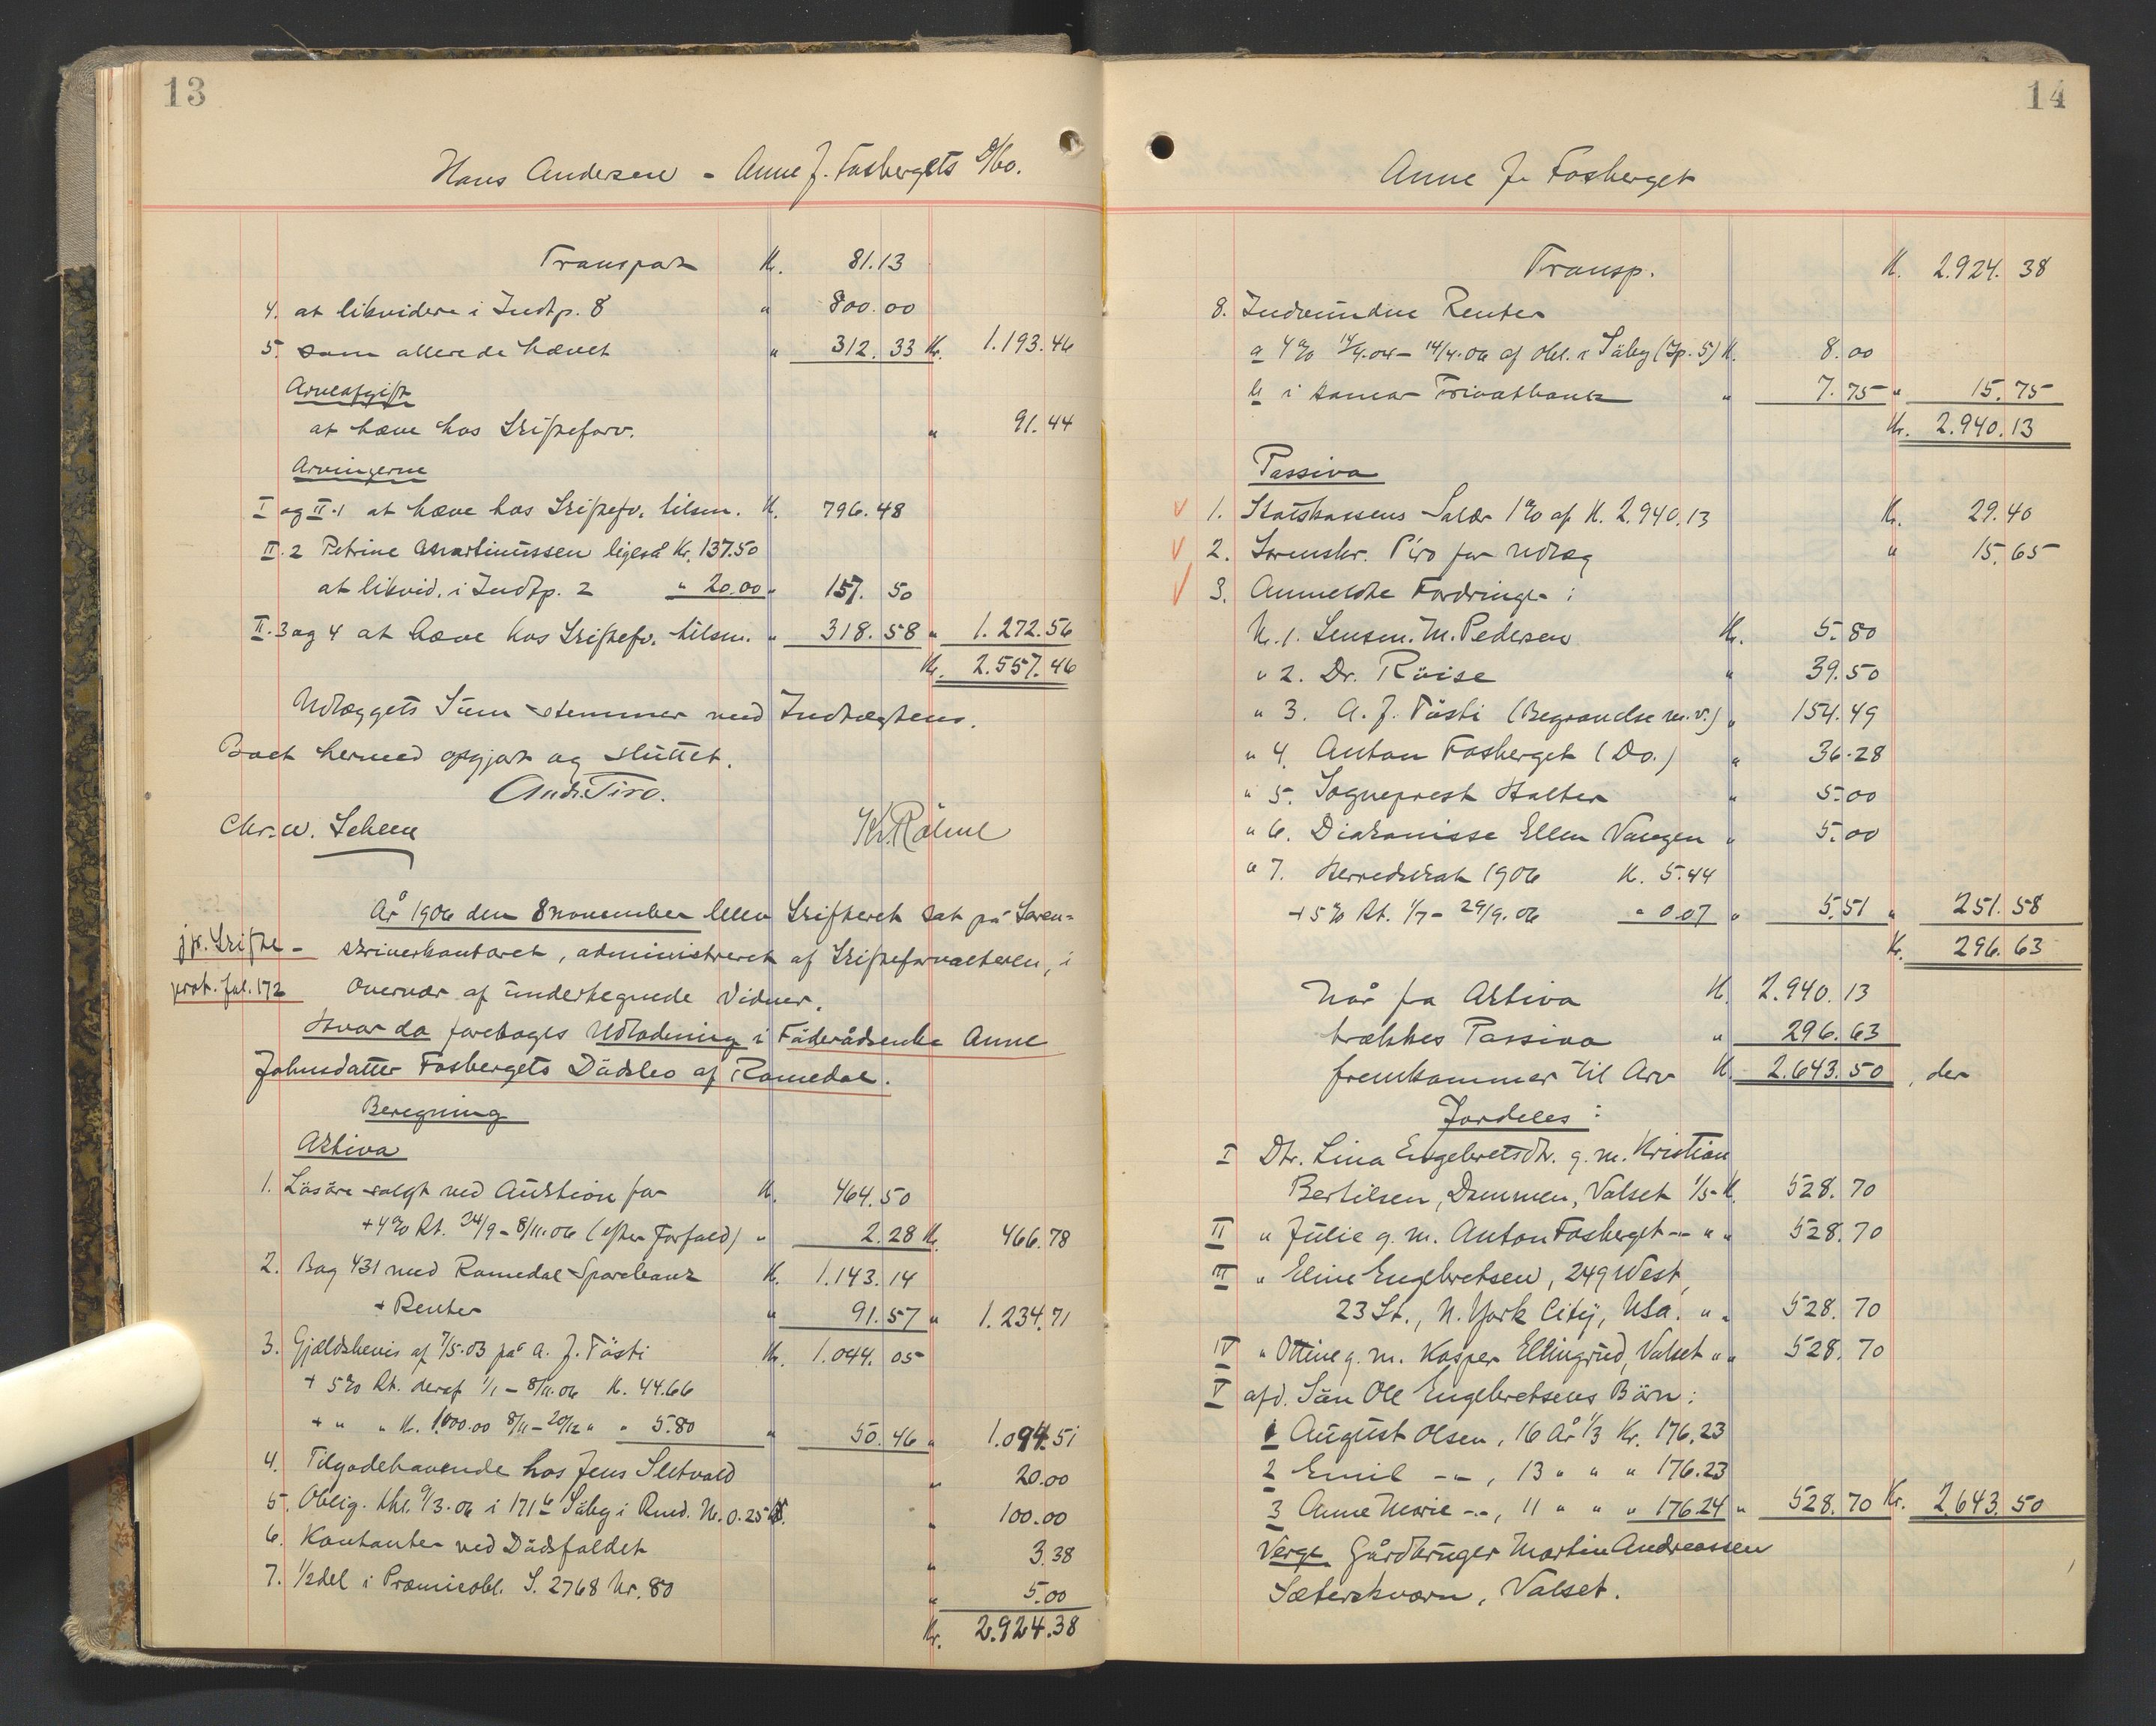 13
Hans Andersen - Anne J. Fosbergets D/bo.
Transport Kr. 81.13
4. at likvidere i Indtp. 8 " 800.00
5. som allerede hævet " 312.33 Kr. 1.193.46
Arveafgift
at hæve hos Skifteforv. " 91.44
Arvingerne
I og II.1 at hæve hos Skiftefv. tilsm. Kr. 796.48
II.2 Petrine Martinussen ligeså Kr. 137.50
at likvid. i Indtp. 2 " 20.00 " 157.50
II.3 og 4 at hæve hos Skiftefv. tilsm. " 318.58 " 1.272.56
Kr. 2.557.46
Udlæggets Sum stemmer med Indtægtens.
Boet hermed opgjort og sluttet.
Andr. Piro.
Chr. W. Scheen Kr. Rølne
År 1906 den 8 november blev Skifteret sat på Soren-
jfr. Skifte- skriverkontoret, administreret af Skifteforvalteren, i
prot. fol. 172 Overvær af undertegnede Vidner.
Hvor da foretoges Udlodning i Føderådsenke Anne
Johnsdatter Fosbergets Dødsbo af Romedal.
Beregning
Aktiva
1. Løsøre solgt ved Auktion for Kr. 464.50
+ 4% Rt. 24/9 - 8/11.06 (efter Forfald) " 2.28 Kr. 466.78
2. Bog 431 med Romedal Sparebank Kr. 1.143.14
+ Renter " 91.57 " 1.234.71
3. Gjældsbevis af 7/5.03 på A. J. Tøsti Kr. 1.044.05
+ 5% Rt. deraf 1/1 - 8/11.06 K. 44.66
+ " " K. 1.000.00 8/11 - 20/12 " " 5.80 " 50.46 " 1.094.51
4. Tilgodehavende hos Jens Sletvold " 20.00
5. Oblig. thl. 9/3.06 i 171 b Säby i Rmd. M. 0.25 " 100.00
6. Kontanter ved Dødsfaldet " 3.38
7. 1/2 del i Præmieobl. S. 2768 Nr. 80 " 5.00
Kr. 2.924.38
14
Anne J. Fosberget
Transp. K. 2.924.38
8. Indvundne Renter
a 4% 14/4.04 - 14/4.06 af Obl. i Säby (Ip. 5) K. 8.00
b i Hamar Privatbank " 7.75 " 15.75
Kr. 2.940.13
Passiva
1. Statskassens Salær 1% af K. 2.940.13 Kr. 29.40
2. Sorenskr. Piro for Udlæg " 15.65
3. Anmeldte Fordringer:
N. 1. Lensm. M. Pedersen Kr. 5.80
" 2. Dr. Röise " 39.50
" 3. A. J. Tøsti (Begravelse m.v.) " 154.49
" 4. Anton Fosberget (Do.) " 36.28
" 5. Sogneprest Halter " 5.00
" 6. Diakonisse Ellen Vangen " 5.00
" 7. Herredsskat 1906 K. 5.44
+ 5% Rt. 1/7 - 29/9.06 " 0.07 " 5.51 " 251.58
Kr. 296.63
Når fra Aktiva K. 2.940.13
trækkes Passiva " 296.63
fremkommer til Arv K. 2.643.50, der
fordeles:
I Dtr. Lina Engebretsdtr. g. m. Kristian
Bertilsen, Dammen, Valset 1/5 - K. 528.70
II " Julie g. m. Anton Fosberget - - " " 528.70
III " Eline Engebretsen, 249 West,
23 St., N. York City, USA. " " 528.70
IV " Ottine g. m. Kasper Ellingrud, Valset " " 528.70
V afd. Søn Ole Engebretsens Børn:
1 August Olsen, 16 År 1/3 Kr. 176.23
2 Emil - " -, 13 " " " 176.23
3 Anne Marie - " -, 11 " " " 176.24 " 528.70 Kr. 2.643.50
Verge Gårdbruger Martin Andreassen
Sæterskværn, Valset.